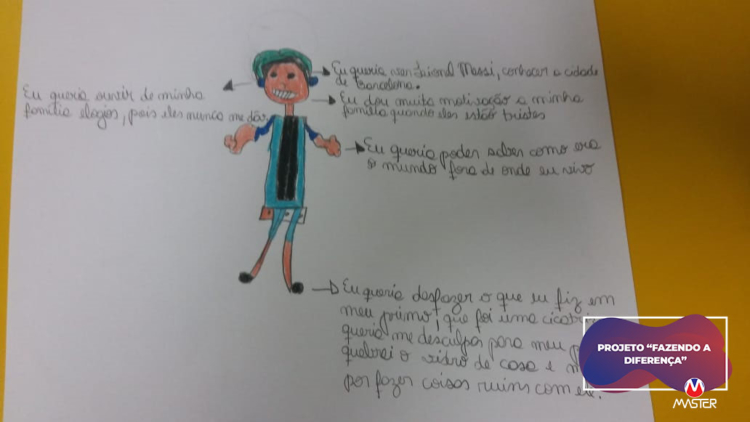 Eu queria ouvir de minha
família elogios, pois eles nunca me dão.
Eu queria ver Leional Massi, conhecer a cidade
de Barcelona.
Eu dou muita motivação a minha
família quando eles estão tristes
Eu queria poder saber como era
o mundo fora de onde eu vivo
Eu queria desfazer o que eu fiz em
meu primo, que foi uma
queria me desculpar para meu
quebrei o vidro de casa e
por fazer coisas ruins com ele.
PROJETO "FAZENDO A
DIFERENÇA"
MASTER